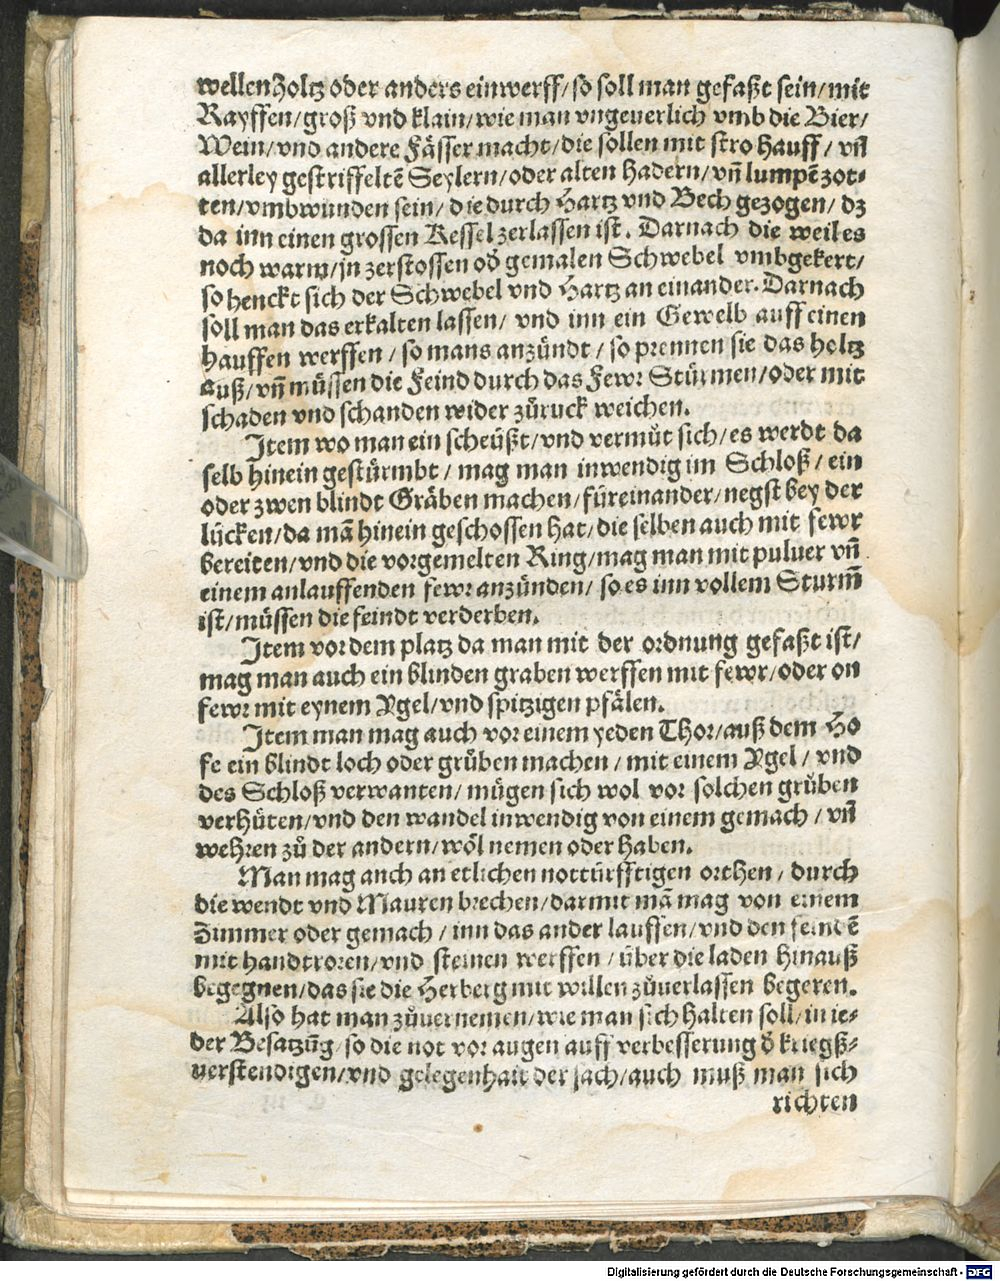 wellen holtz oder anders einwerff / so soll man gefaßt sein / mit
Rayffen / groß vnd klain / wie man vngeuerlich vmb die Bier /
Wein / vnd andere Fässer macht / die sollen mit stro hauff / vñ
allerley gestriffeltē Seylern / oder alten hadern / vñ lumpē zot⸗
ten / vmbwunden sein / die durch Hartz vnd Bech gezogen / dz
da inn einen grossen Kessel zerlassen ist. Darnach die weil es
noch warm / jn zerstossen od̕ gemalen Schwebel vmbgekert /
so henckt sich der Schwebel vnd Hartz an einander. Darnach
soll man das erkalten lassen / vnd inn ein Gewelb auff einen
hauffen werffen / so mans anzündt / so prennen sie das holtz
auß / vñ müssen die Feind durch das Fewr Stürmen / oder mit
schaden vnd schanden wider zůruck weichen.
Item wo man ein scheüßt / vnd vermůt sich / es werdt da
selb hinein gestürmbt / mag man inwendig im Schloß / ein
oder zwen blindt Gräben machen / füreinander / negst bey der
lücken / da mā hinein geschossen hat / die selben auch mit fewr
bereiten / vnd die vorgemelten Ring / mag man mit puluer vñ
einem anlauffenden fewr anzünden / so es inn vollem Sturm̄
ist / müssen die feindt verderben.
Item vor dem platz da man mit der ordnung gefaßt ist /
mag man auch ein blinden graben werffen mit fewr / oder on
fewr mit eynem Ygel / vnd spitzigen pfälen.
Item man mag auch vor einem yeden Thor / auß dem Ho
fe ein blindt loch oder grůben machen / mit einem Ygel / vnd
des Schloß verwanten / mügen sich wol vor solchen grůben
verhüten / vnd den wandel inwendig von einem gemach / vñ
wehren zů der andern / wöl nemen oder haben.
Man mag auch an etlichen nottürfftigen orthen / durch
die wendt vnd Mauren brechen / darmit mā mag von einem
Zimmer oder gemach / inn das ander lauffen / vnd den feindē
mit handtroren / vnd steinen werffen / über die laden hinauß
begegnen / das sie die Herberg mit willen zůuerlassen begeren.
Also hat man zůuernemen / wie man sich halten soll / in ie⸗
der Besatzūg / so die not vor augen auff verbesserung d̕ kriegß⸗
uerstendigen / vnd gelegenhait der sach / auch muß man sich
richten
Digitalisierung gefördert durch die Deutsche Forschungsgemeinschaft - DFG